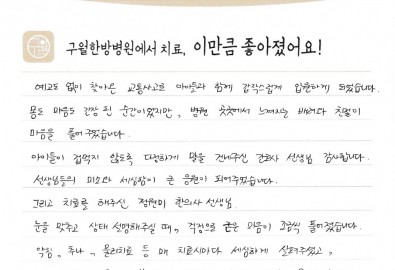 구월한방병원에서 치료, 이만큼 좋아졌어요!
예고도 없이 찾아온 교통사고로 아이들과 함께 갑작스럽게 입원하게 되었습니다.
몸도 마음도 긴장 된 순간이었지만, 병원 곳곳에서 느껴지는 배려와 친절이
마음을 풀어주었습니다.
아이들이 겁먹지 않도록 다정하게 말을 건네주신 간호사 선생님 감사합니다.
선생님들의 미소와 세심함이 큰 응원이 되어주었습니다.
그리고 치료를 해주신, 정현미 한의사 선생님.
눈을 맞추고 상태 설명해주실 때, 걱정으로 굳은 마음이 조금씩 풀어졌습니다.
약침, 추나, 물리치료 등 매 치료시마다 세심하게 살펴주셨고,